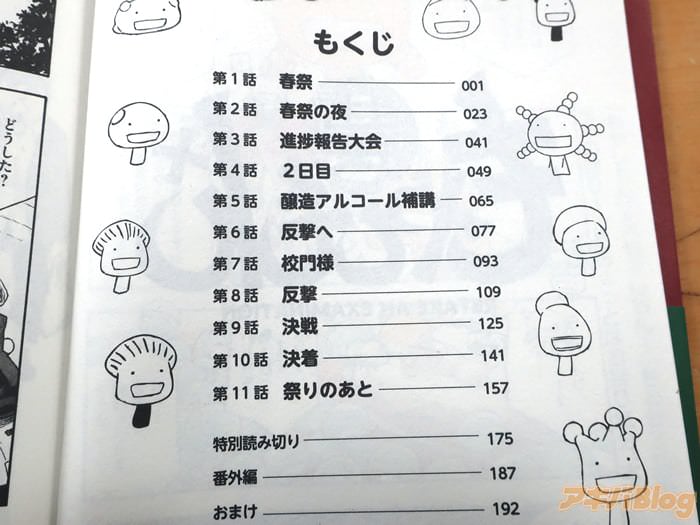 もくじ
第1話 春祭 001
第2話 春祭の夜 023
第3話 進捗報告大会 041
第4話 2日目 049
第5話 醸造アルコール補講 065
第6話 反撃へ 077
第7話 校門様 093
第8話 反撃 109
第9話 決戦 125
第10話 決着 141
第11話 祭りのあと 157
特別読み切り 175
番外編 187
おまけ 192
どうした?
アキバBlog